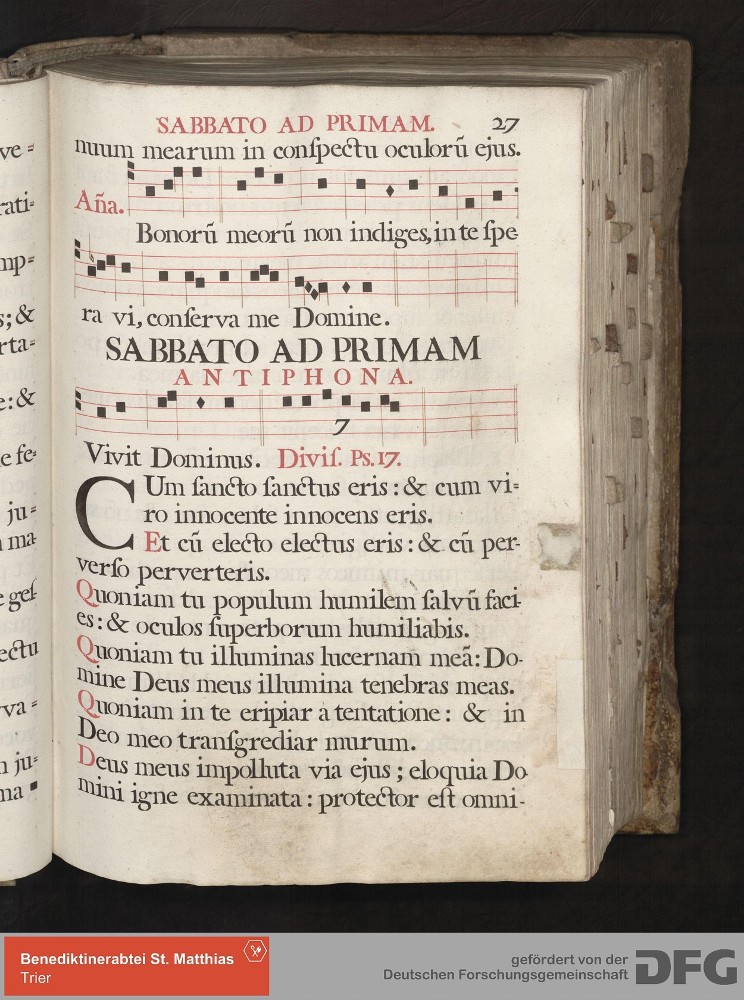 ve =
rati=
mp=
s; &
rta=
e: &
e fe=
ju=
ma
e geſ
ectu
va =
n ju=
ma
SABBATO AD PRIMAM. 27
nuum mearum in conſpectu oculorũ ejus.
Aña.
Bonorũ meorũ non indiges, in te ſpe
ra vi, conſerva me Domine.
SABBATO AD PRIMAM
ANTIPHONA.
7
Vivit Dominus. Diviſ. Ps. 17.
CUm ſancto ſanctus eris : & cum vi-
ro innocente innocens eris.
Et cũ electo electus eris : & cũ per-
verſo perverteris.
Quoniam tu populum humilem ſalvũ faci-
es : & oculos ſuperborum humiliabis.
Quoniam tu illuminas lucernam meã: Do-
mine Deus meus illumina tenebras meas.
Quoniam in te eripiar à tentatione : & in
Deo meo tranſgrediar murum.
Deus meus impolluta via ejus ; eloquia Do
mini igne examinata : protector eſt omni-
Benediktinerabtei St. Matthias
Trier
gefördert von der
Deutschen Forschungsgemeinschaft
DFG